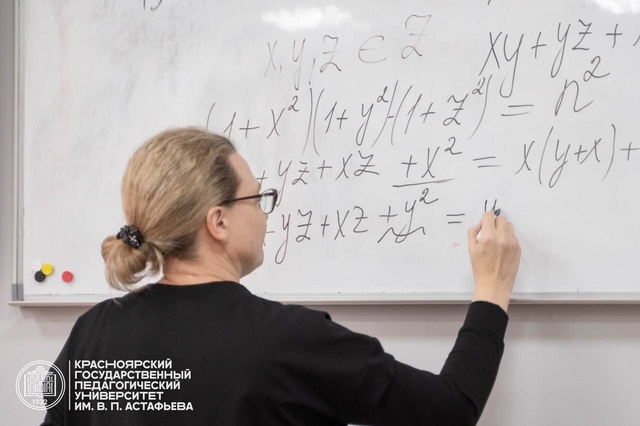 x, y, z ∈ Z
xy + yz +
(1 + x²)(1 + y²)(1 + z²) = n²
+ yz + xz + x² = x(y+x) +
+ yz + xz + y² =
КРАСНОЯРСКИЙ
ГОСУДАРСТВЕННЫЙ
ПЕДАГОГИЧЕСКИЙ
УНИВЕРСИТЕТ
ИМ. В. П. АСТАФЬЕВА
1932